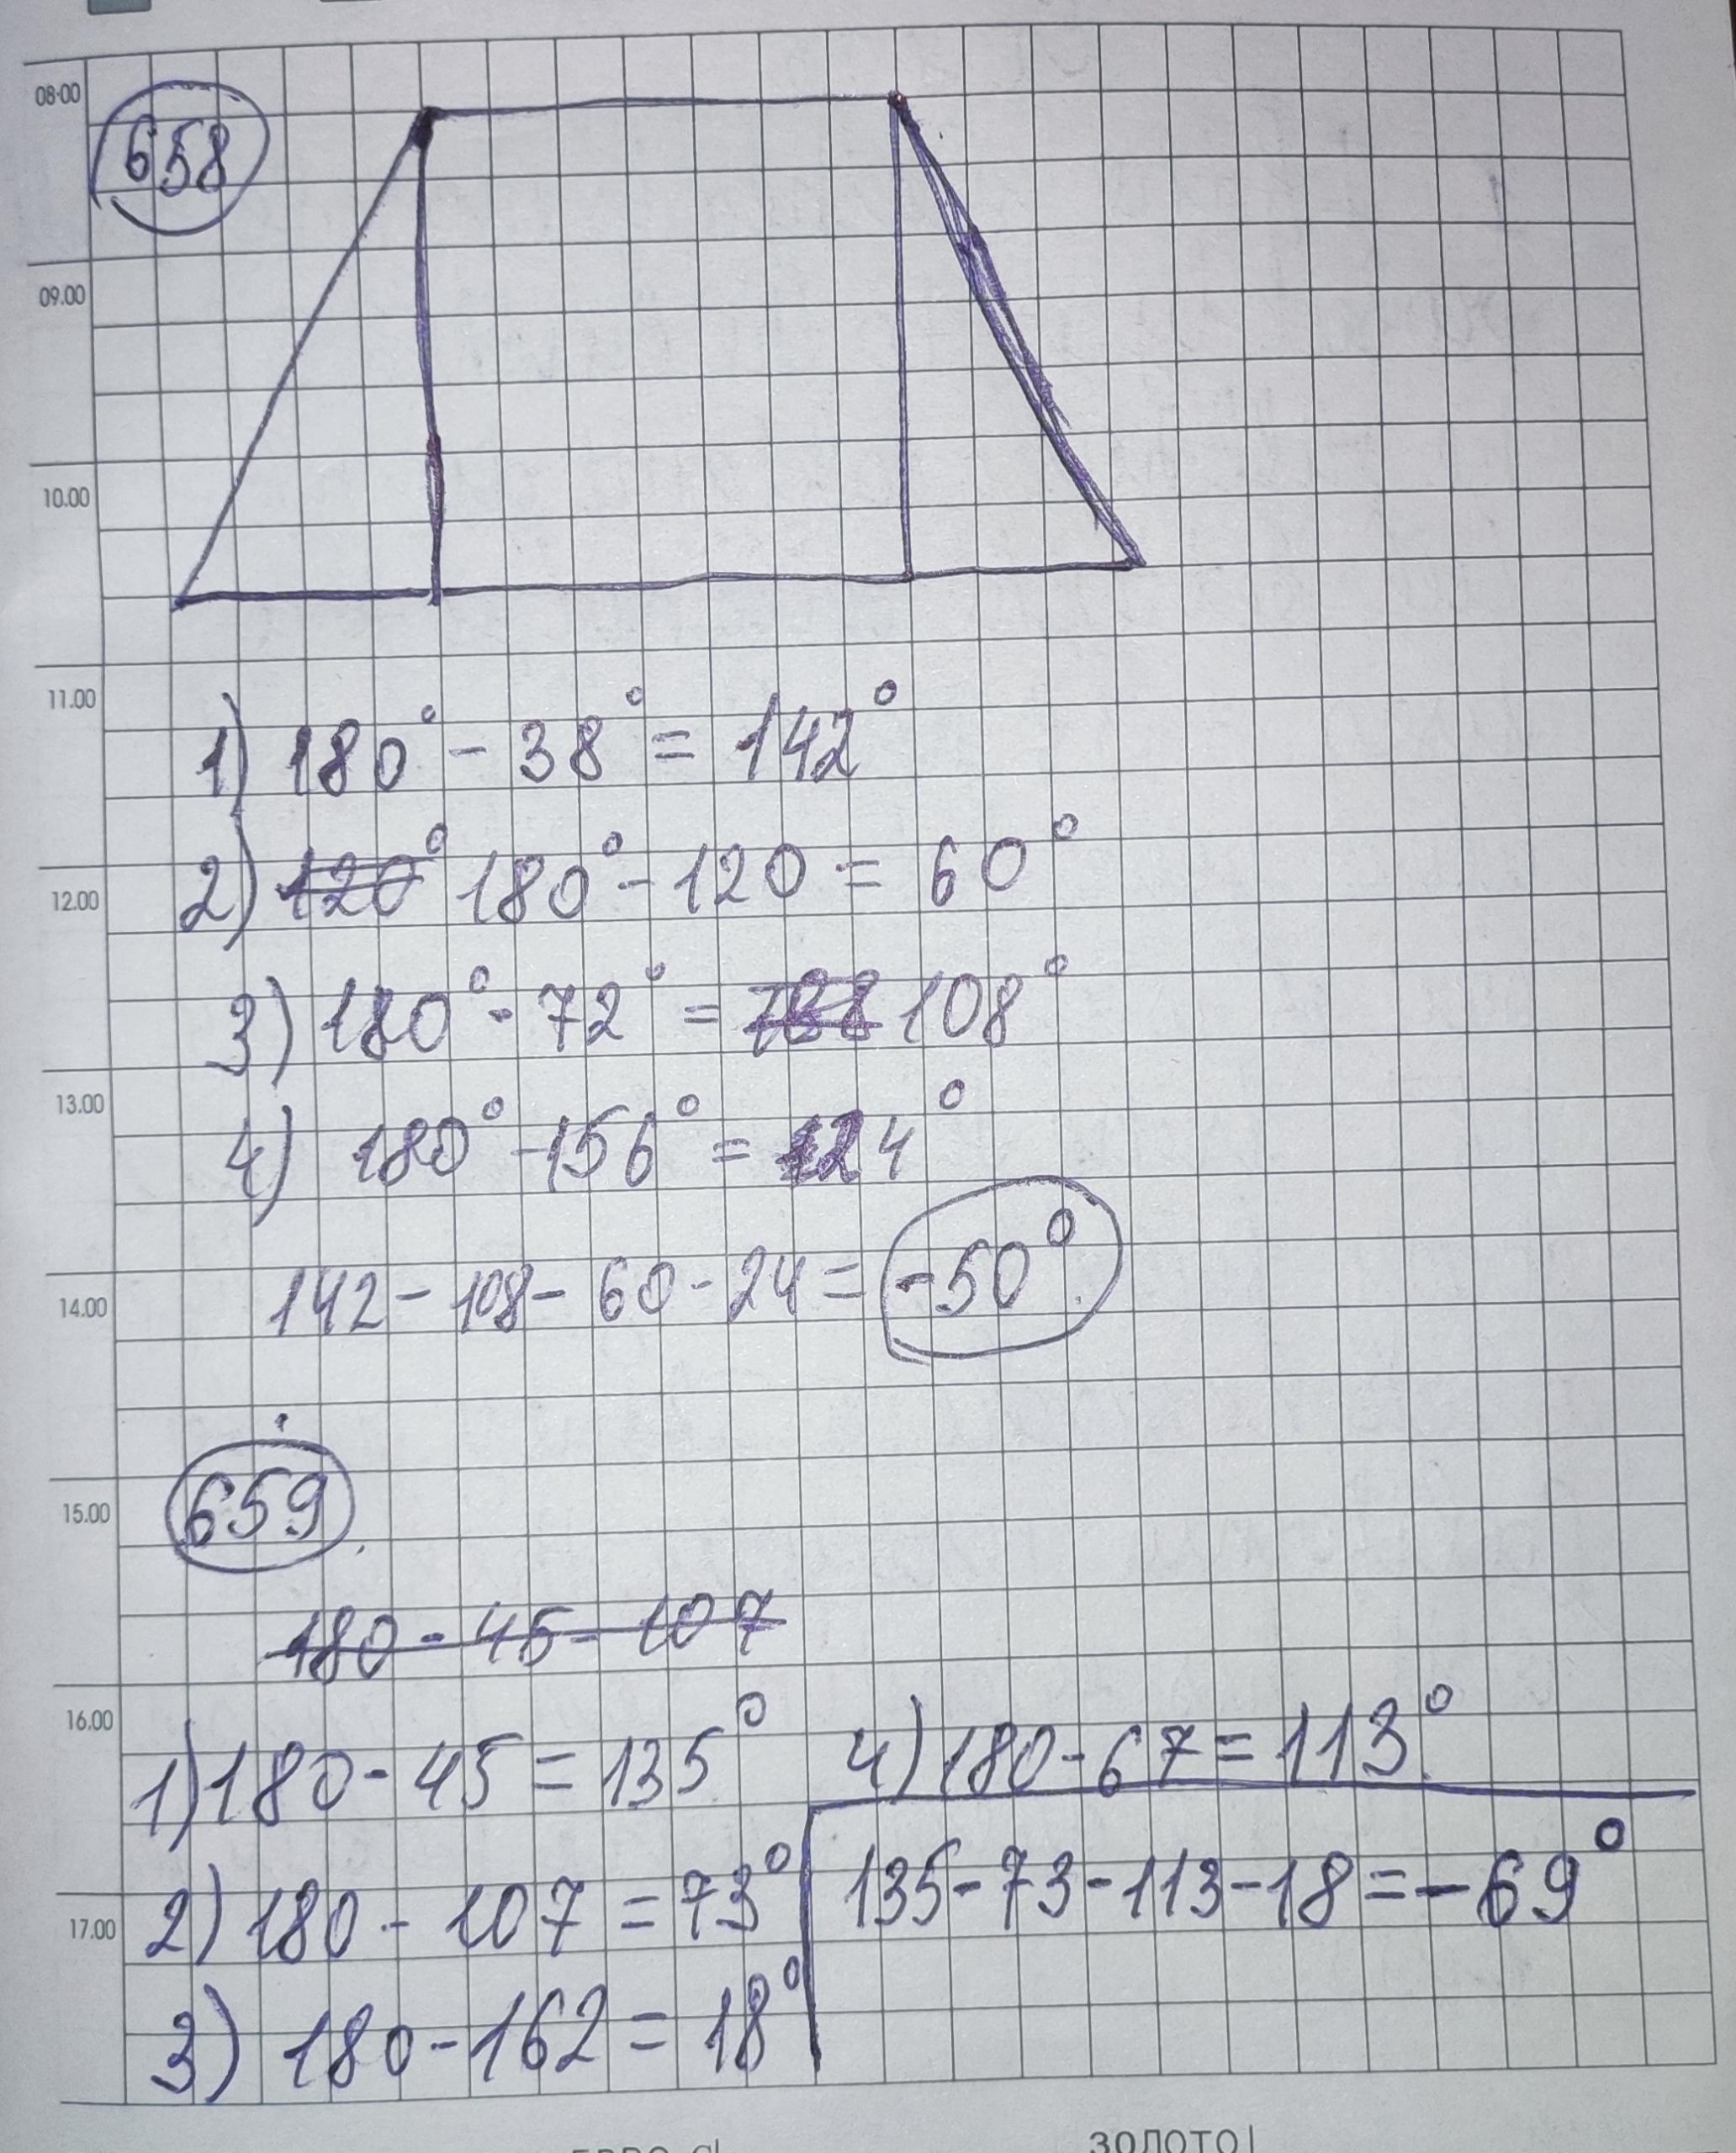 08.00
658
09.00
10.00
11.00
1) 180° - 38° = 142°
12.00
2) 120° 180° - 120 = 60°
3) 180° - 72° = 108°
13.00
4) 180° - 156° = 24°
14.00
142 - 108 - 60 - 24 = -50°
659
15.00
180 - 45 - 107
16.00
1) 180 - 45 = 135°
4) 180 - 67 = 113°
17.00
2) 180 - 107 = 73°
135 - 73 - 113 - 18 = -69°
3) 180 - 162 = 18°
ЗОЛОТО